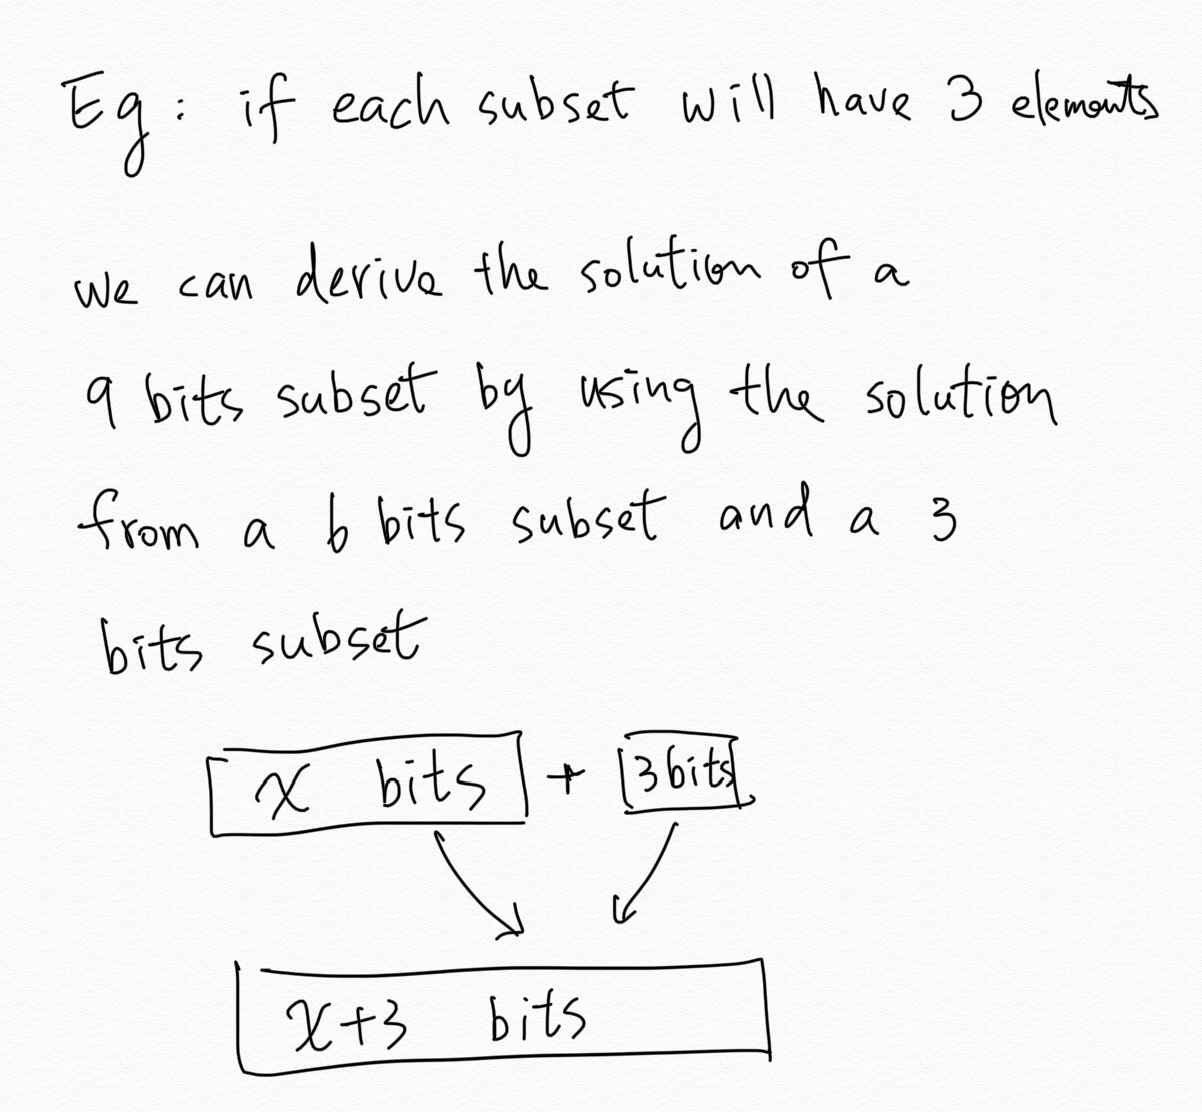 Eg: if each subset will have 3 elements
we can derive the solution of a
9 bits subset by using the solution
from a 6 bits subset and a 3
bits subset
x bits + 3 bits
x+3 bits